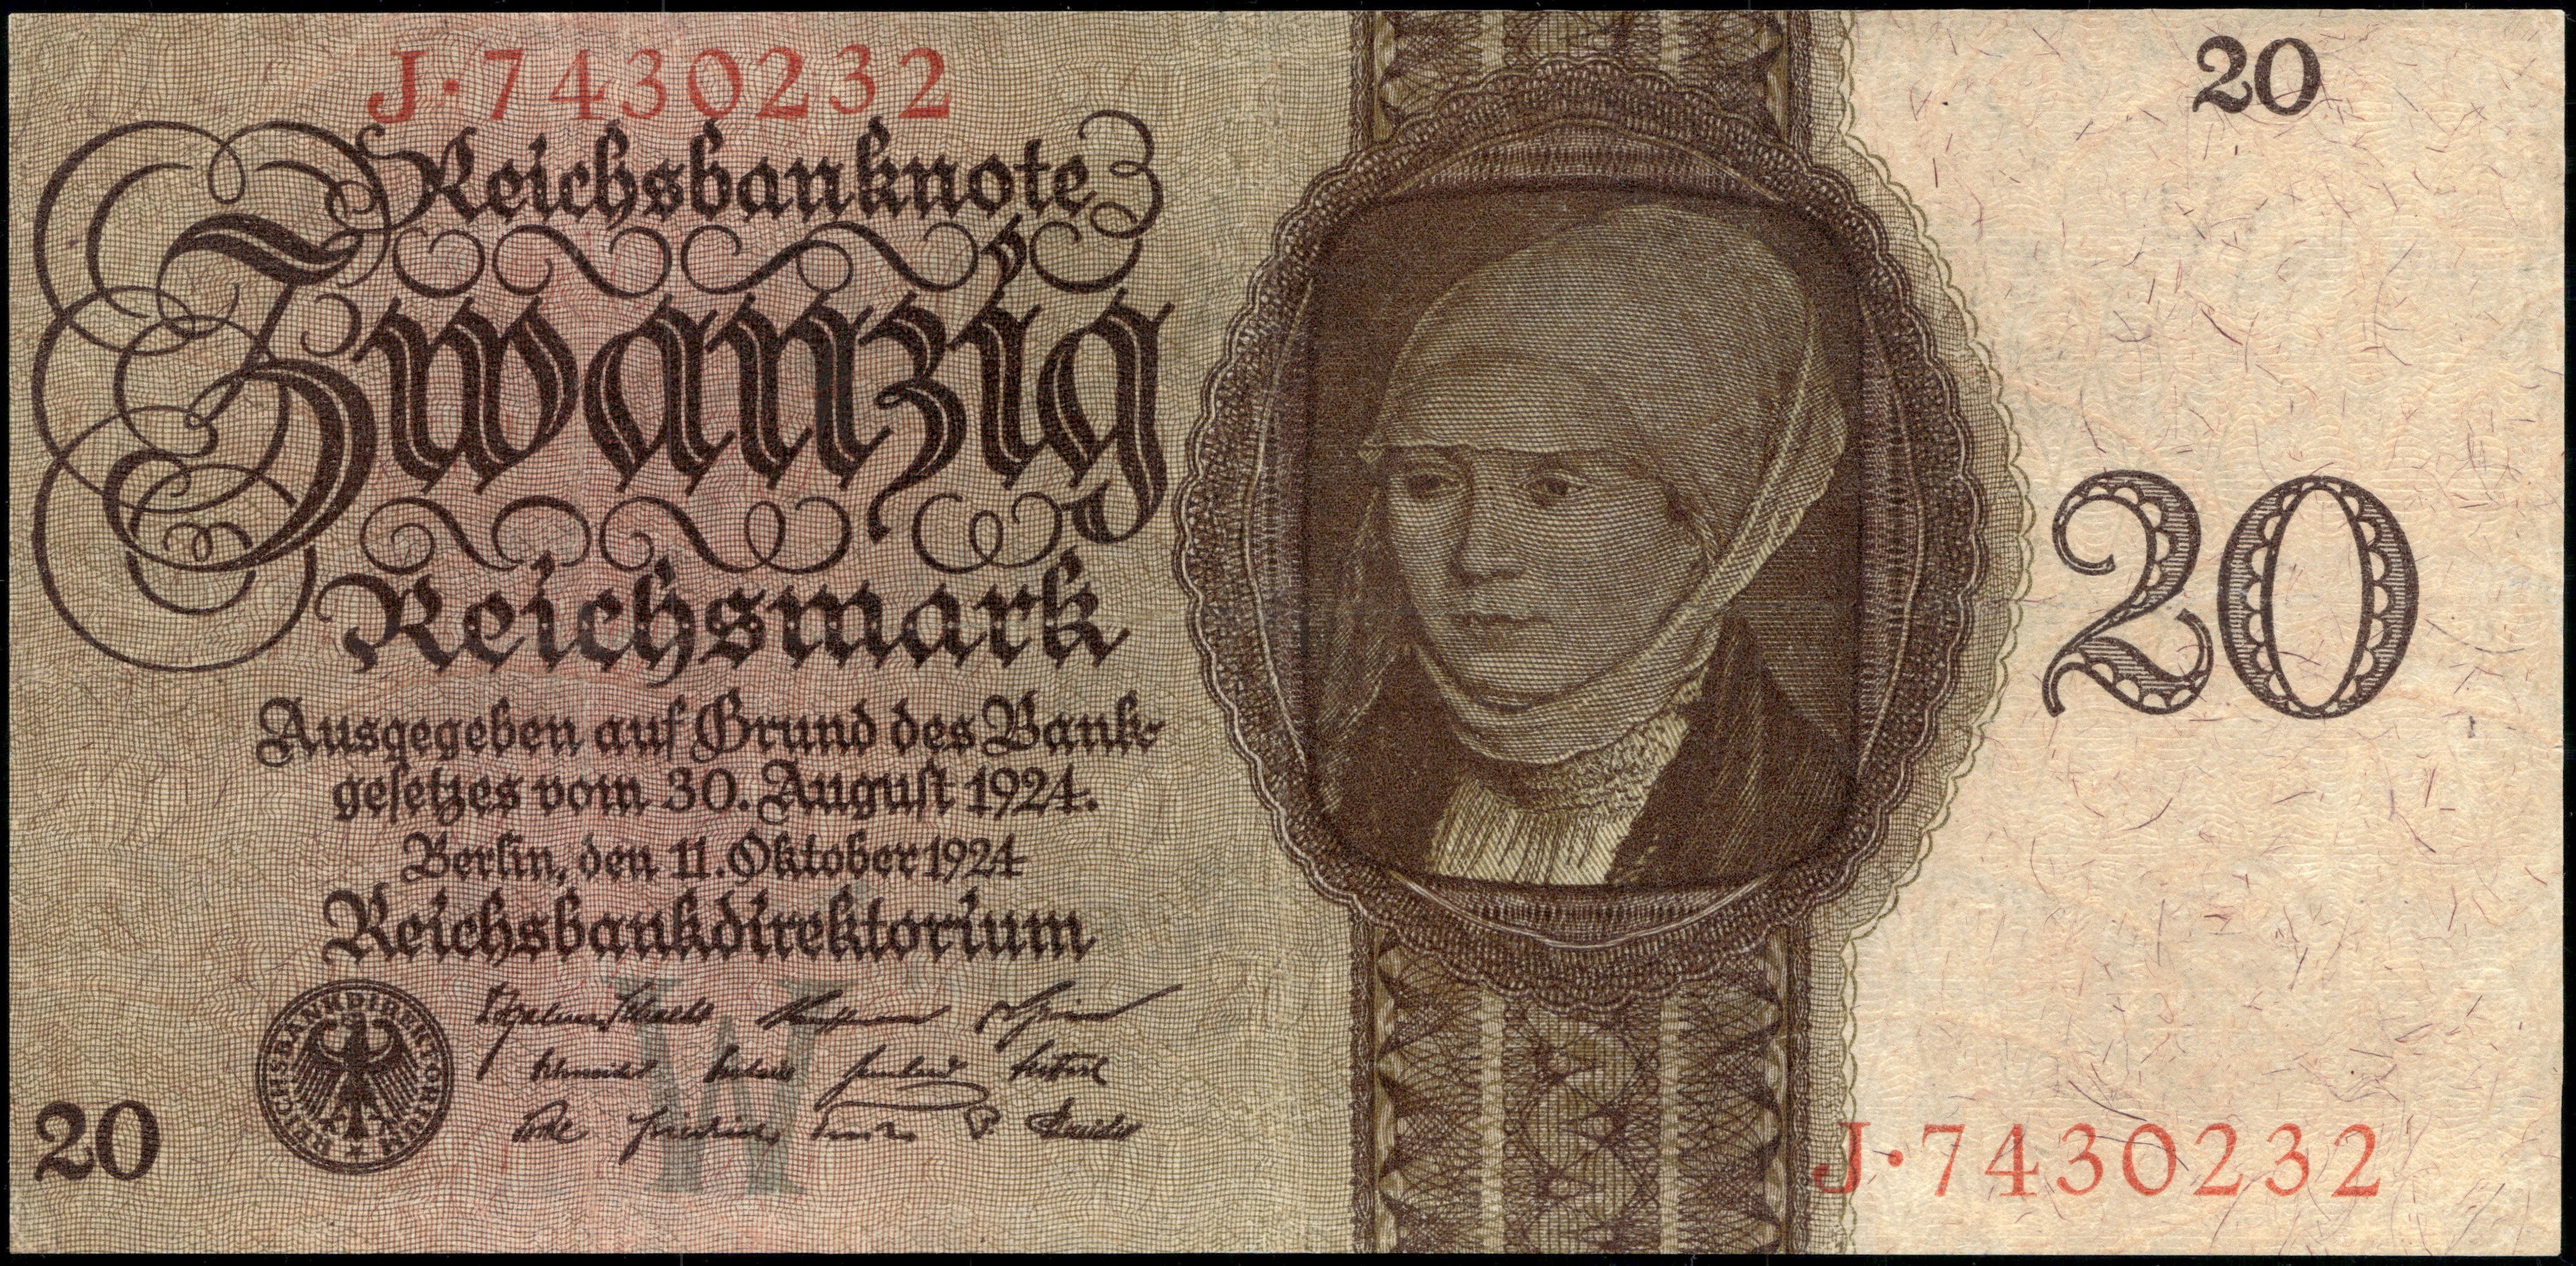 J·7430232
20
Reichsbanknote
Zwanzig
Reichsmark
20
Ausgegeben auf Grund des Bank-
gesetzes vom 30. August 1924.
Berlin, den 11. Oktober 1924
Reichsbankdirektorium
REICHSBANKDIREKTORIUM
W
20
J·7430232